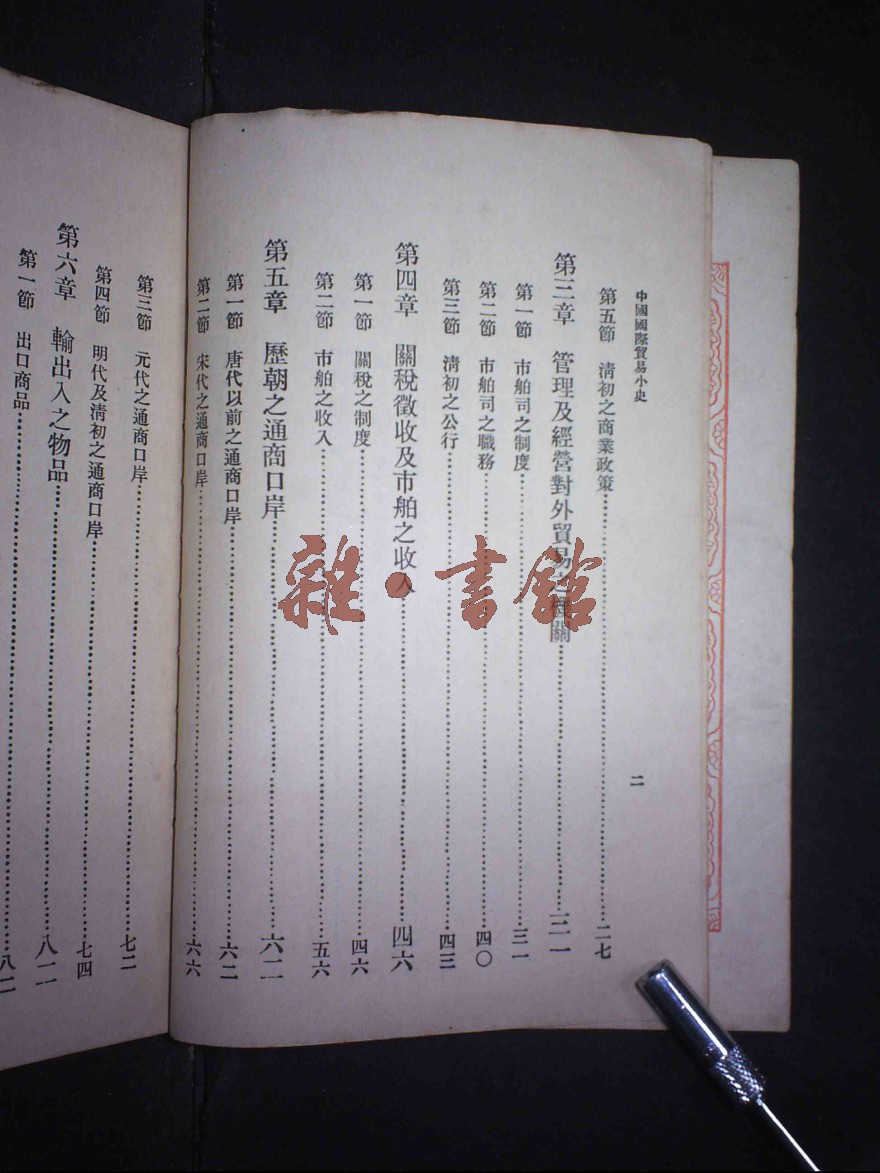 中國國際貿易小史
二
第五節 清初之商業政策 二七
第三章 管理及經營對外貿易之機關 三一
第一節 市舶司之制度 三一
第二節 市舶司之職務 四〇
第三節 清初之公行 四三
第四章 關稅徵收及市舶之收入 四六
第一節 關稅之制度 四六
第二節 市舶之收入 五六
第五章 歷朝之通商口岸 六二
第一節 唐代以前之通商口岸 六二
第二節 宋代之通商口岸 六六
第三節 元代之通商口岸 七二
第四節 明代及清初之通商口岸 七四
第六章 輸出入之物品 八二
第一節 出口商品 八二
雜·書館